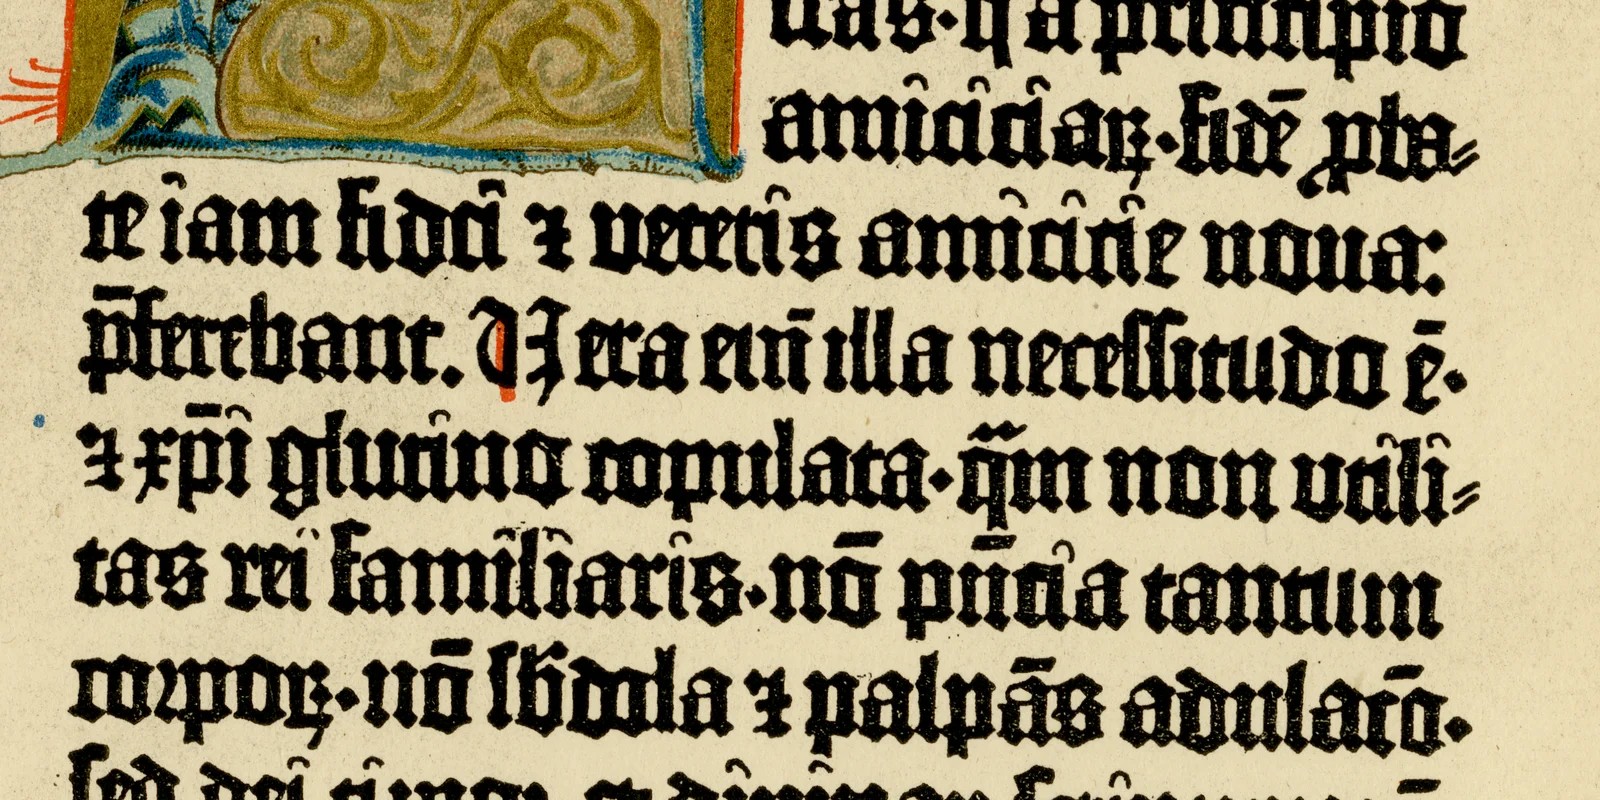 ras·q̄ a principio
amiciciaꝝ·fidē ꝓba⸗
te iam fidei ⁊ veteris amicicie noua:
p̄ferebant. Uera em̄ illa necessitudo ē·
⁊ xp̄i glutino copulata·qm̄ non vtili⸗
tas rei familiaris·nō pn̄cia tantum
corpoꝝ·nō sb̄dola ⁊ palpās adulacō·
sed dei timor et diuinaꝝ